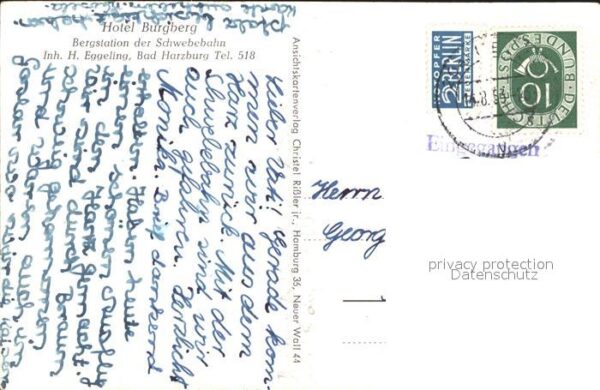 Hotel Burgberg
Bergstation der Schwebebahn
Inh. H. Eggeling, Bad Harzburg Tel. 518
Lieber Vati! Gerade kom-
men wir aus dem
Harz zurück. Mit der
Schwebebahn sind wir
auch gefahren. Herzlichst
Monika. Brief dankend
erhalten. Haben heute
einen schönen Ausflug
in den Harz gemacht.
Wir sind durch Braun
schweig gekommen
und waren auch in
Goslar
Ansichtskartenverlag Christel Rißler jr., Hamburg 36, Neuer Wall 44
NOTOPFER
2 BERLIN
STEUERMARKE
DEUTSCHE BUNDESPOST
10
Eingegangen
Herrn
Georg
privacy protection
Datenschutz